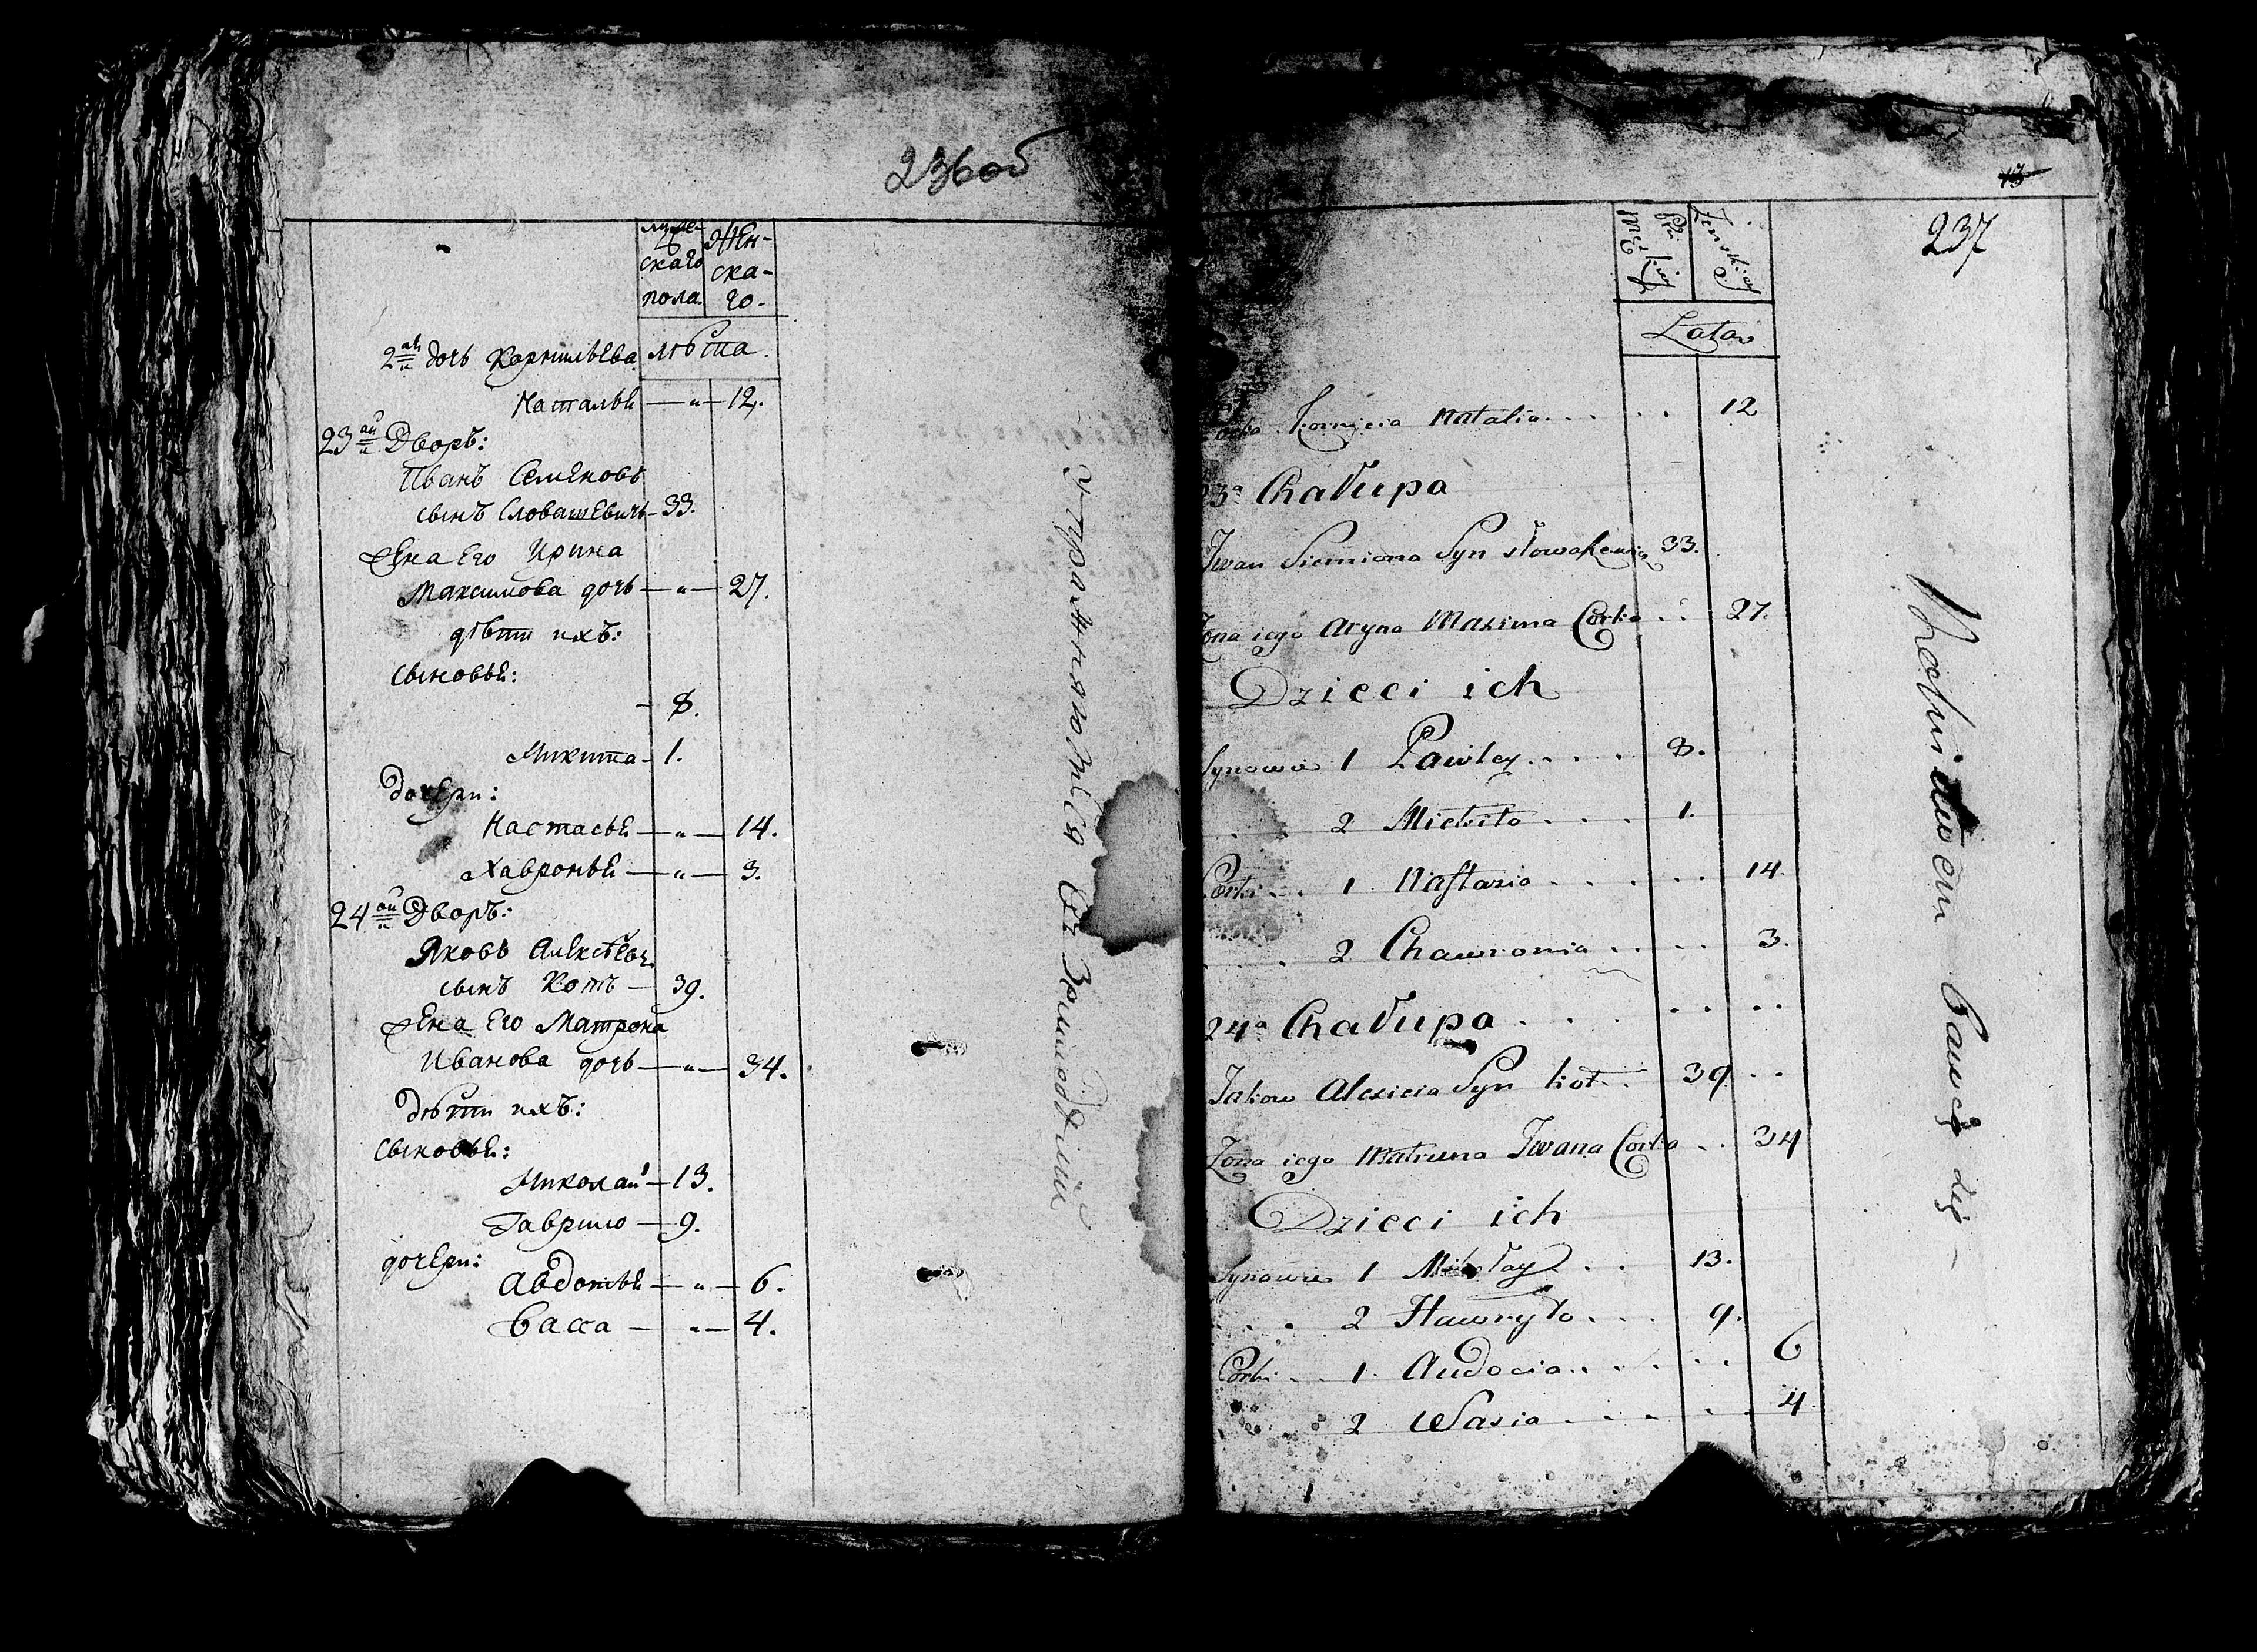 236об
муже-
скаго
пола.
жен-
ска-
го.
лѣта.
2ая дочь Корнилѣева
Наталья — „ — 12.
23ай Дворъ:
Иванъ Семіоновъ
сынъ Словашевичъ — 33.
жена его Ирина
Максимова дочь — „ — 27.
дѣти ихъ:
сыновья:
— 8.
Микита — 1.
дочери:
Настасья — „ — 14.
Хавронья — „ — 3.
24ай Дворъ:
Яковъ Алексѣевъ
сынъ Котъ — 39.
жена его Матрона
Иванова дочь — „ — 34.
дѣти ихъ:
сыновья:
Николай — 13.
Гаврило — 9.
дочери:
Авдотья — „ — 6.
Васса — „ — 4.
13
237
Męzkiey
Płci
Zenskiey
Lata
Natalia . . . . . 12
23a Chałupa
Iwan Siemiona Syn 33.
Zona iego Aryna Maxima Corka . . 27.
Dzieci ich
Synowie 1 Pawley . . . . 8.
2 Mickito . . . 1.
Corki . . 1 Nastazia . . . . . . 14.
. . . . 2 Chawronia . . . . 3.
24a Chałupa . . . . . . .
Jakow Alexieia Syn Kot . . 39 . .
Zona iego Matruna Iwana Corka . . 34
Dzieci ich
Synowie 1 Mikołay . . . 13.
. . . . 2 Hawryło . . . 9.
Corki . . 1 Audocia . . . . . . 6
2 Wasia . . . . . . 4.